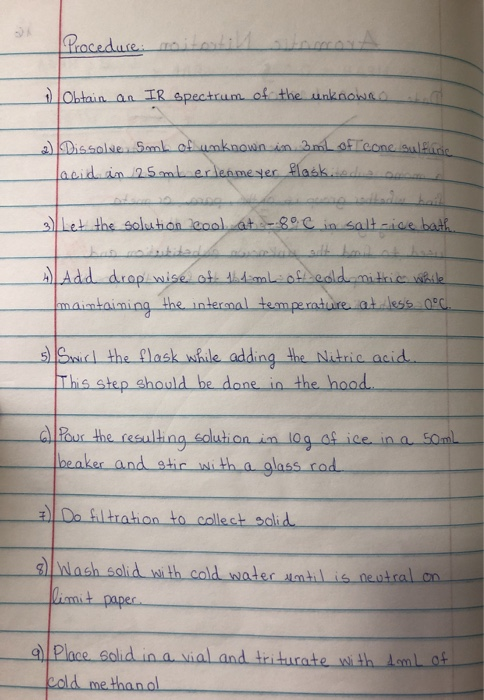 Procedure:
1) Obtain an IR spectrum of the unknown
2) Dissolve 5mL of unknown in 3mL of conc sulfuric
acid in 25mL erlenmeyer flask.
3) Let the solution cool at -8°C in salt-ice bath
4) Add drop wise of 1.1mL of cold nitric while
maintaining the internal temperature at less 0°C.
5) Swirl the flask while adding the Nitric acid.
This step should be done in the hood.
6) Pour the resulting solution in 10g of ice in a 50mL
beaker and stir with a glass rod
7) Do filtration to collect solid
8) Wash solid with cold water until is neutral on
limit paper.
9) Place solid in a vial and triturate with 1mL of
cold methanol